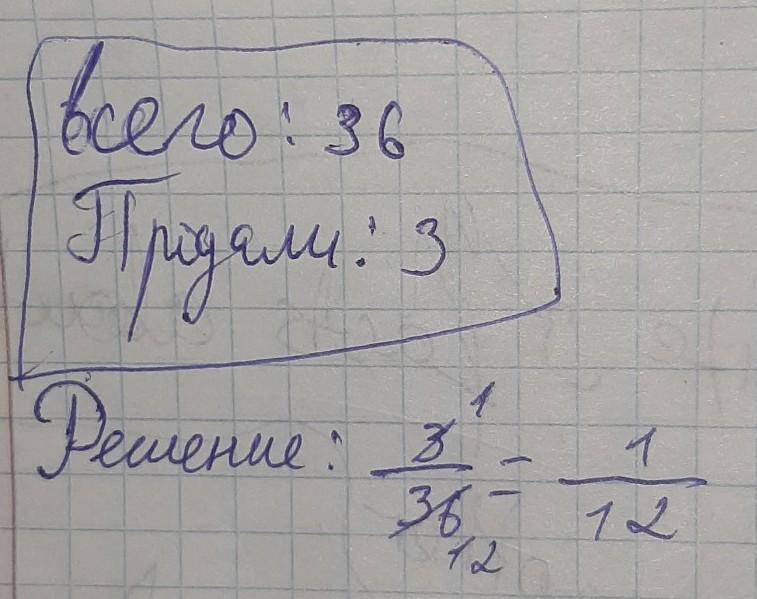 Всего: 36
Продали: 3
Решение: 3/36 = 1/12
1
12